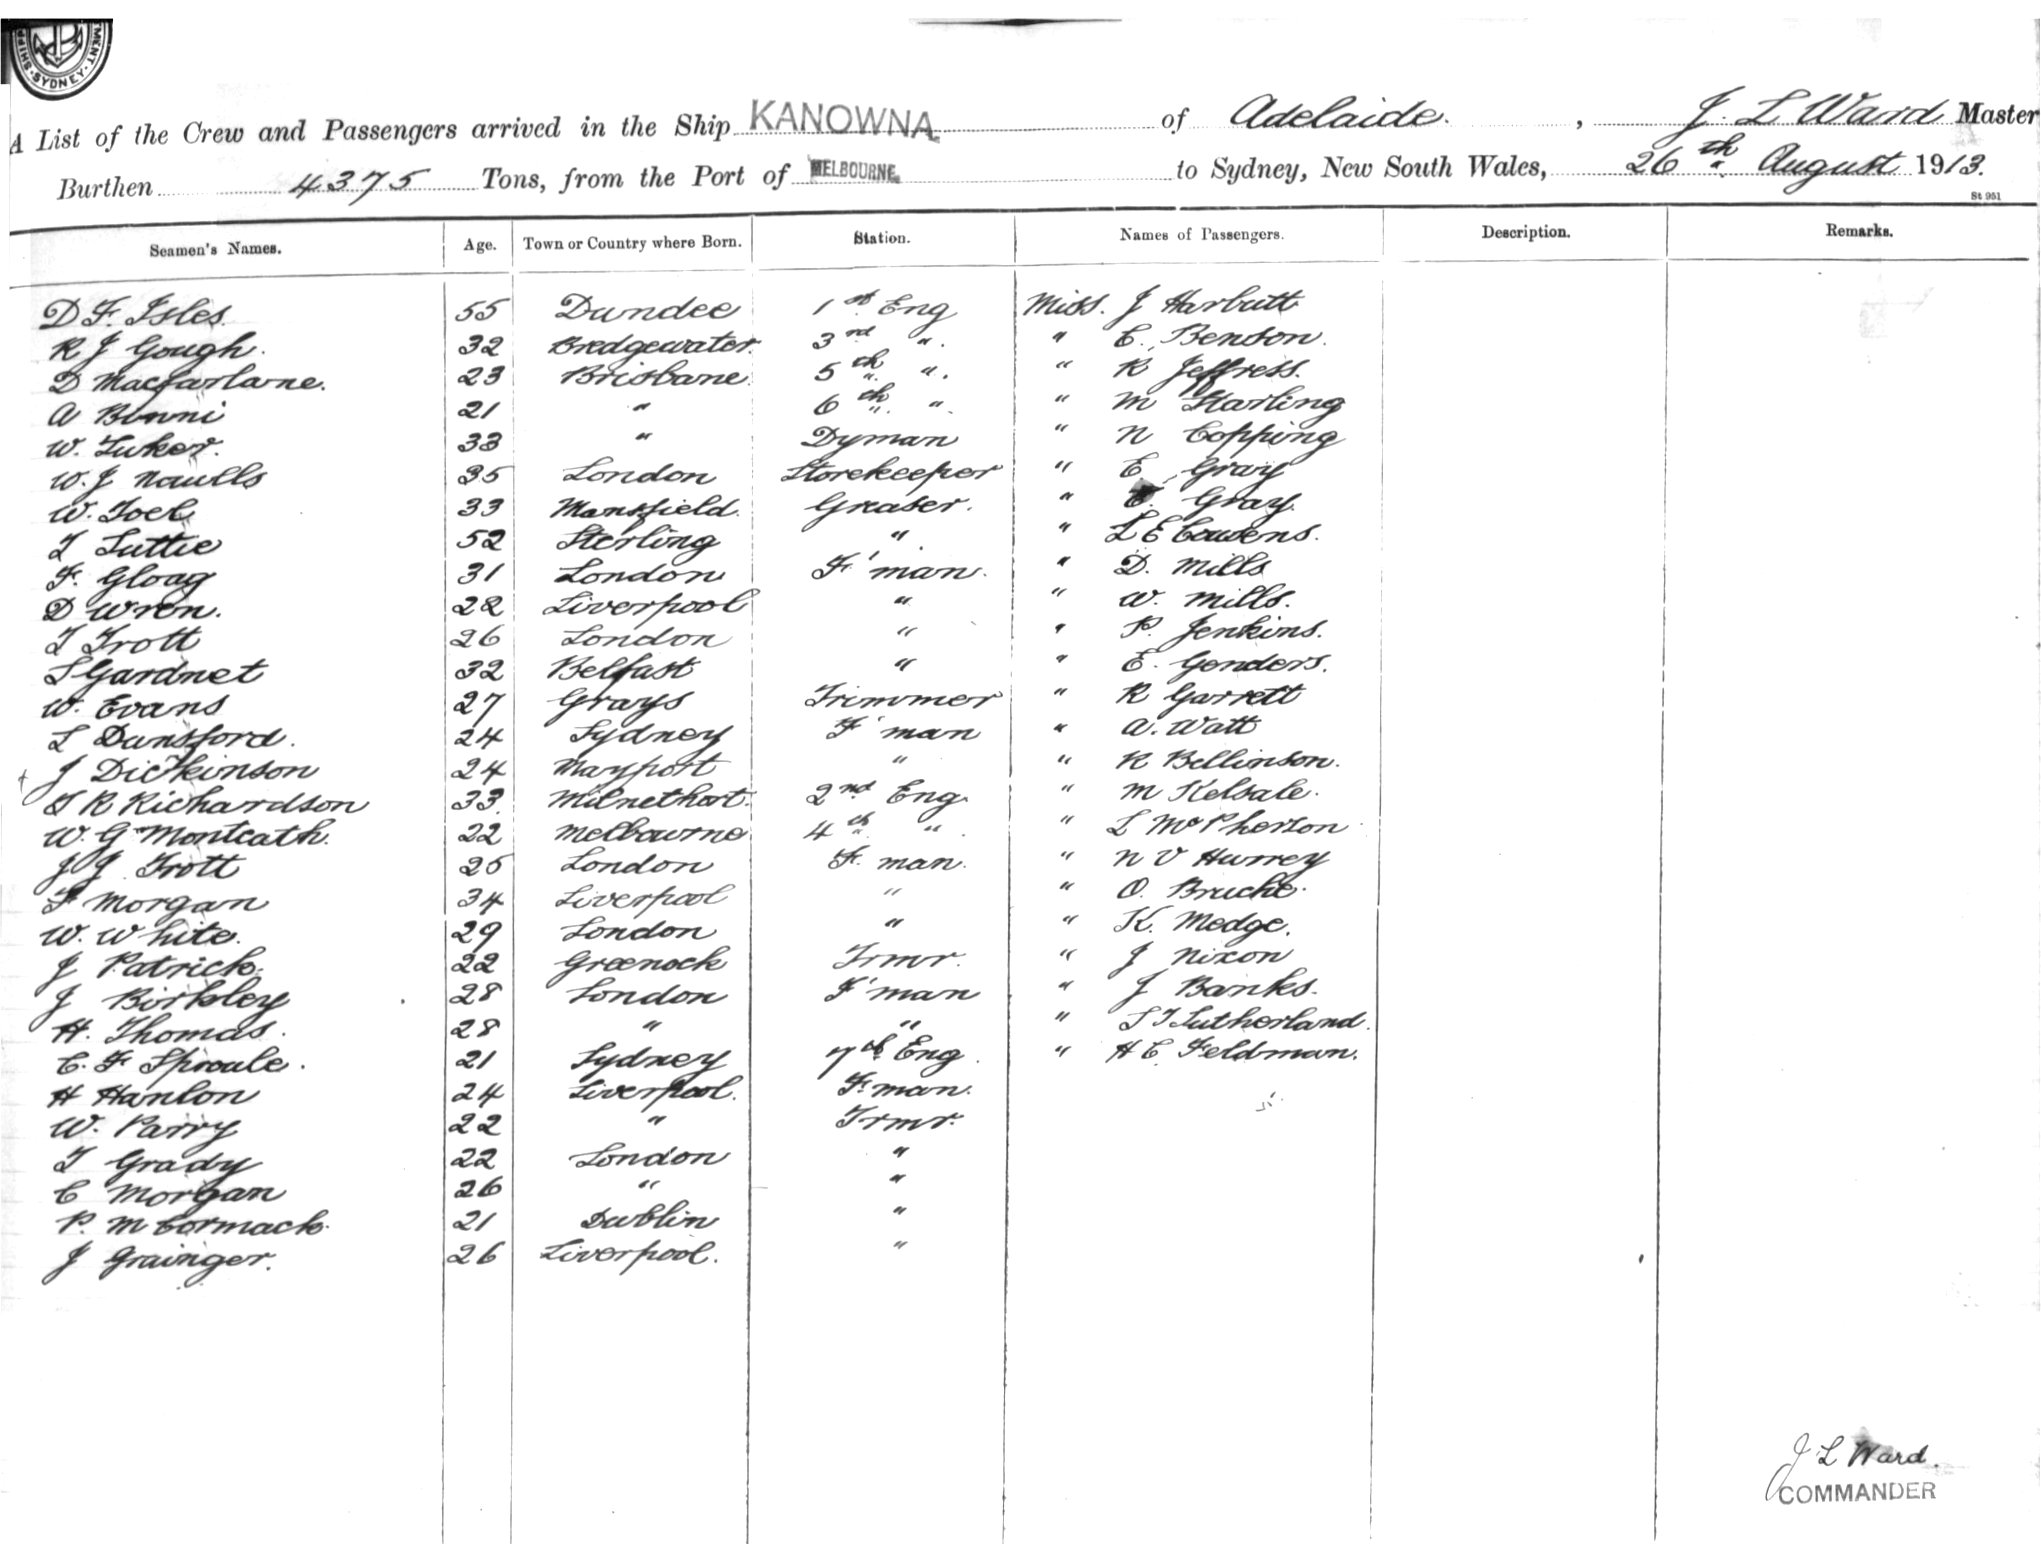 SHIPP MENT · SYDNEY ·
A List of the Crew and Passengers arrived in the Ship KANOWNA of Adelaide. , J. L Ward Master
Burthen 4375 Tons, from the Port of MELBOURNE to Sydney, New South Wales, 26th August 1913.
St 951
Seamen's Names. Age. Town or Country where Born. Station. Names of Passengers. Description. Remarks.
D F. Isles. 55 Dundee 1st Eng Miss. J Harbutt
R J Gough. 32 Bredgewater. 3rd ". " C. Benson.
D Macfarlane. 23 Brisbane. 5th ". " R Jeffress.
A Binni 21 " 6th ". " M Starling
W. Tuker. 33 " Dyman " N Copping
W. J Naulls 35 London Storekeeper " E Gray
W. Joel 33 Mansfield. Greaser. " C. Gray.
T Luttie 52 Sterling " " L E Cousens.
F. Gloag 31 London F'man. " D. Mills
D Wren. 22 Liverpool " " W. Mills.
T Trott 26 London " " P. Jenkins.
S Gardnet 32 Belfast " " E. Genders.
W. Evans 27 Grays Trimmer " R Garrett
L Dunsford. 24 Sydney F'man " A. Watt
J Dickinson 24 Mayport " " R Bellinson.
T R Richardson 33. Milnethort. 2nd Eng. " M Kelsale.
W. G Montcath. 22 Melbourne 4th " " L McPherson
J J Trott 25 London F. man. " N V Hurrey
F Morgan 34 Liverpool " " O. Bruche.
W. White. 29 London " " K. Medge.
J Patrick. 22 Greenock Trmr. " J Nixon
J Birkley 28 London F'man " J Banks.
H. Thomas. 28 " " " S T Sutherland.
C. F Sproule. 21 Sydney 7th Eng. " H C Feldman.
H Hanlon 24 Liverpool. F.man.
W. Parry 22 " Trmr.
T Grady 22 London "
C Morgan 26 " "
P. McCormack. 21 Dublin "
J Grainger. 26 Liverpool. "
J L Ward.
COMMANDER